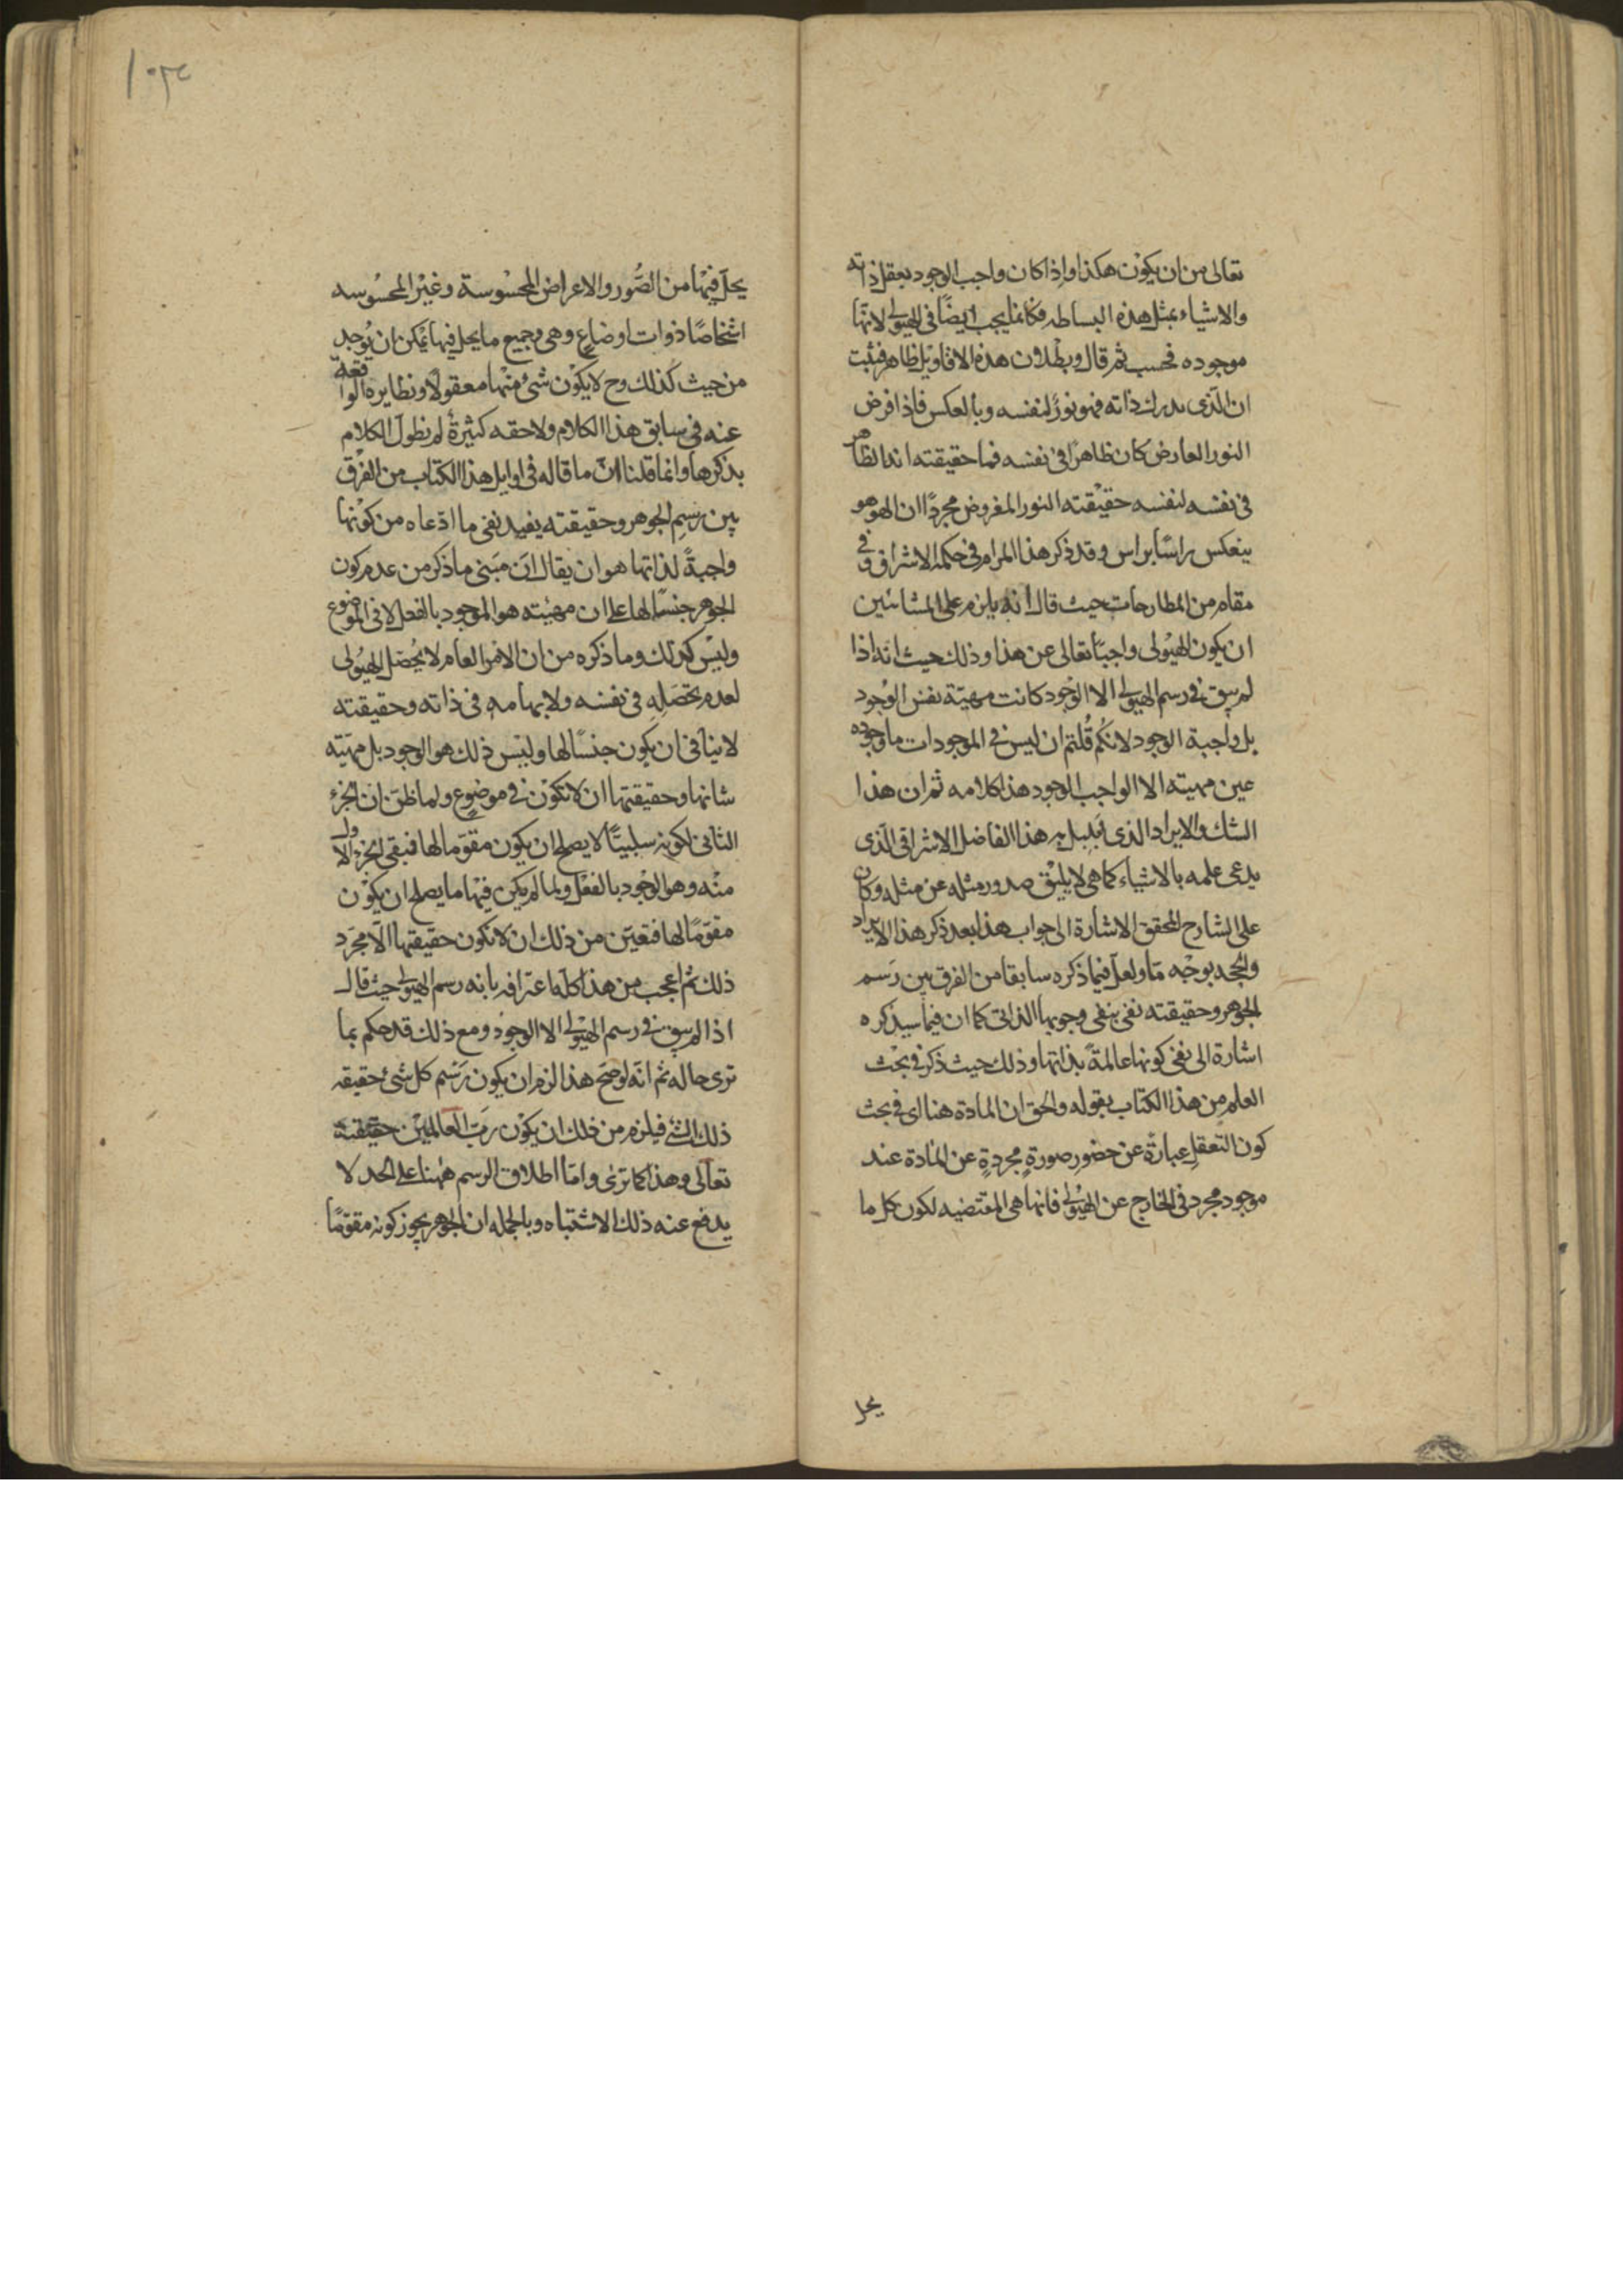 تعالى من ان يكون هكذا واذا كان واجب الوجود بعقل ذاته
والاشياء بمثل هذه البساطه فكانما يجب ايضًا فى الهيولى لانها
موجوده فحسب ثم قال وبطلان هذه الاقاويل ظاهر فثبت
ان الذى يدرك ذاته فهو نورٌ لنفسه وبالعكس فاذا فرض
النور العارض كان ظاهرًا فى نفسه فما حقيقته انه الظاهر
فى نفسه لنفسه حقيقته النور المفروض مجردًا ان الهو هو
ينعكس راسًا براس وقد ذكر هذا المرام فى حكمة الاشراق و فى
مقام من المطارحات حيث قال انه يلزم على المشائين
ان يكون الهيولى واجبًا تعالى عن هذا وذلك حيث انه اذا
لم يبق فى رسم الهيولى الا الوجود كانت مهيّة نفس الوجود
بل واجبة الوجود لانكم قُلتم ان ليس فى الموجودات ما وجوده
عين مهيته الا الواجب الوجود هذا كلامه ثم ان هذا
الشك والايراد الذى بَلبل به هذا الفاضل الاشراقى الّذى
يدعى علمه بالاشياء كما هى لا يليق صدور مثله عن مثله وكان
على الشارح المحقق الاشارة الى جواب هذا بعد ذكر هذا الايراد
والحجه بوجْه مّا ولعل فيما ذكره سابقا من الفرق بين رَسم
الجوهر وحقيقته نفى ينفى وجوبها الذاتى كما ان فيما سيذكره
اشارة الى نفى كونها عالمةً بذاتها وذلك حيث ذكر فى بحث
العلم من هذا الكتاب بقوله والحق ان المادة هنا اى فى بحث
كون التعقل عبارةً عن حضور صورةٍ مجردةٍ عن المادة عند
موجود مجرد فى الخارج عن الهيُولى فانها هى المقتضيه لكون كل ما
يحل
١٠٣٤
يحلّ فيها من الصُّور والاعراض المحسْوسة وغيْر المحسُوسه
اشخاصًا ذوات اوضاع وهى وجميع ما يحل فيها يمكن ان يُوجد
من حيث كذلك وح لا يكون شئ منها معقولًا ونظايره الواقعة
عنه فى سابق هذا الكلام ولاحقه كثيرةٌ لم نطول الكلام
بذكرها وانما قلنا انّ ما قاله فى اوايل هذا الكتاب من الفرْق
بين رسم الجوهر وحقيقته يفيد نفى ما ادّعاه من كونها
واجبةً لذاتها هو ان يقال انّ مَبنى ما ذكر من عدم كون
الجوهر جنسًا لها على ان مهيته هو الموجود بالفعل لا فى الموضوع
وليْس كذلك وما ذكره من ان الامر العام لا يُحصّل الهيُولى
لعدم تحصّلهِ فى نفسه ولابهامه فى ذاته وحقيقته
لا ينافى ان يكون جنسًا لها وليْس ذلك هو الوجود بل مهيّته
شانها وحقيقتها ان لا تكون فى موضوع ولما ظنّ ان الجزء
الثانى لكونه سلبيًّا لا يصلح ان يكون مقوّما لها فبقى الجزء الاول
منْه وهو الوجْود بالفعْل ولما لم يكن فيها ما يصلح ان يكوْن
مقوّمًا لها فتعيّن من ذلك ان لا تكون حقيقتها الّا مجرّد
ذلك ثم اعجب من هذا كلّه اعترافه بانه رسم الهيولى حيث قال
اذا لم يبق فى رسم الهيْولى الا الوجوْد ومع ذلك قد حكم بما
ترى حاله ثم انّه لو صَح هذا الزم ان يكون رَسْم كل شئ حقيقه
ذلك الشئ فيلزم من ذلك ان يكوْن رَبّ العالميْن حقيقته
تعالى وهذا كما ترى وامّا اطلاق الرسم ههنا على الحد لا
يدفع عنه ذلك الاشتباه وبالجمله ان الجوهر يجوز كونه مقوّمًا